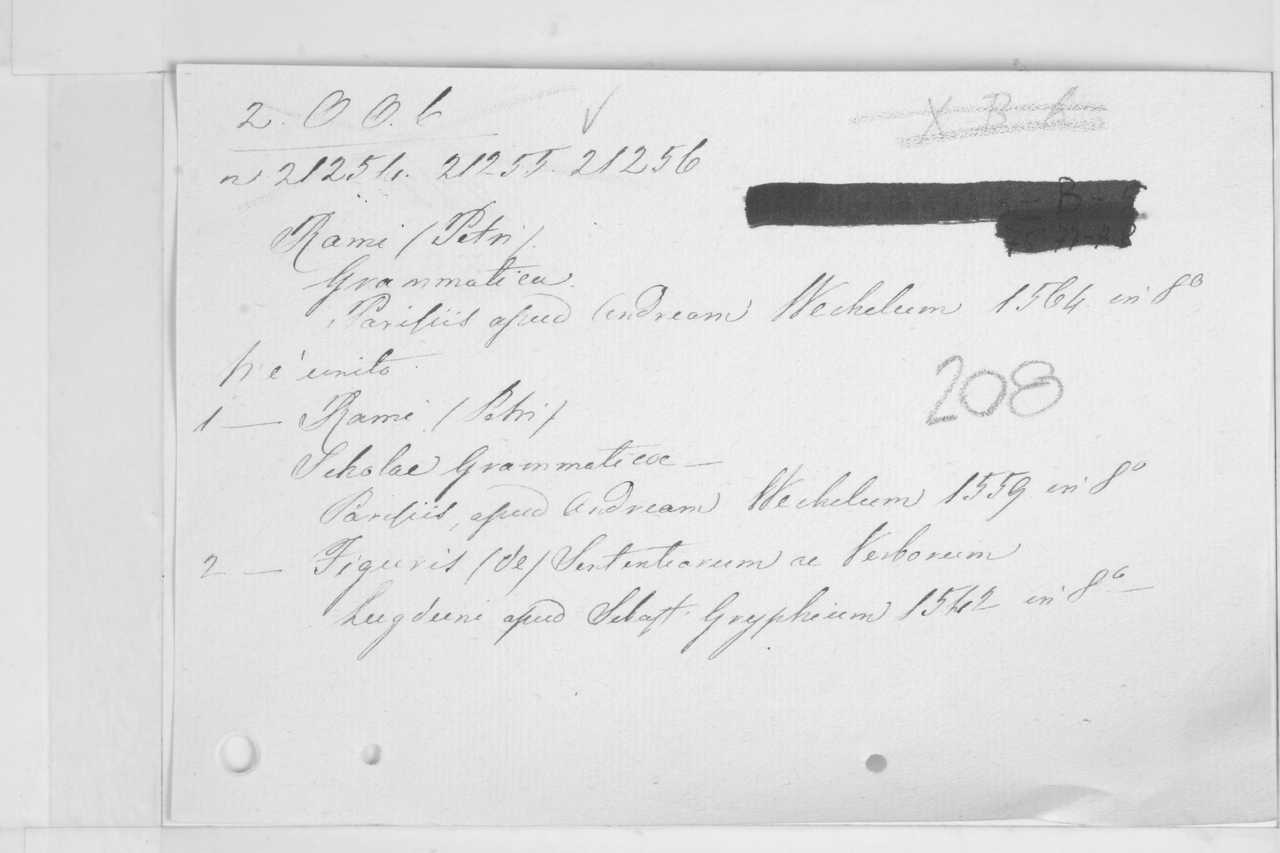 2. O O. 6
X B 6
n 21254. 21255. 21256
Rami (Petri)
Grammatica.
Parisiis apud Andream Wechelum 1564 in 8°
Vi é unito
208
1 — Rami (Petri)
Scholae Grammaticae —
Parisiis, apud Andream Wechelum 1559 in 8°
2 — Figuris (de) Sententiarum ac Verborum
Lugduni apud Sebast. Gryphium 1542 in 8° —